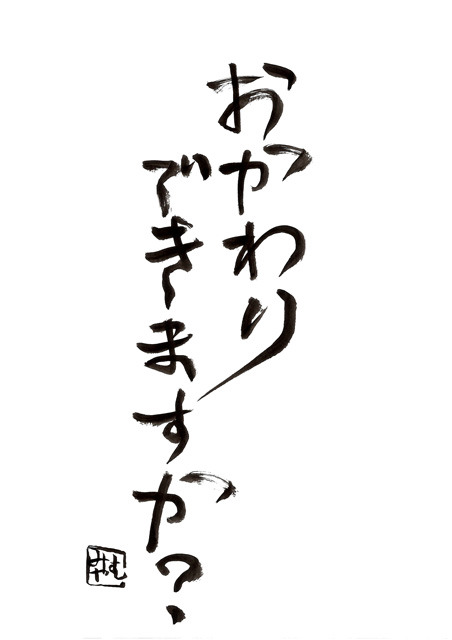 おかわり
できますか?